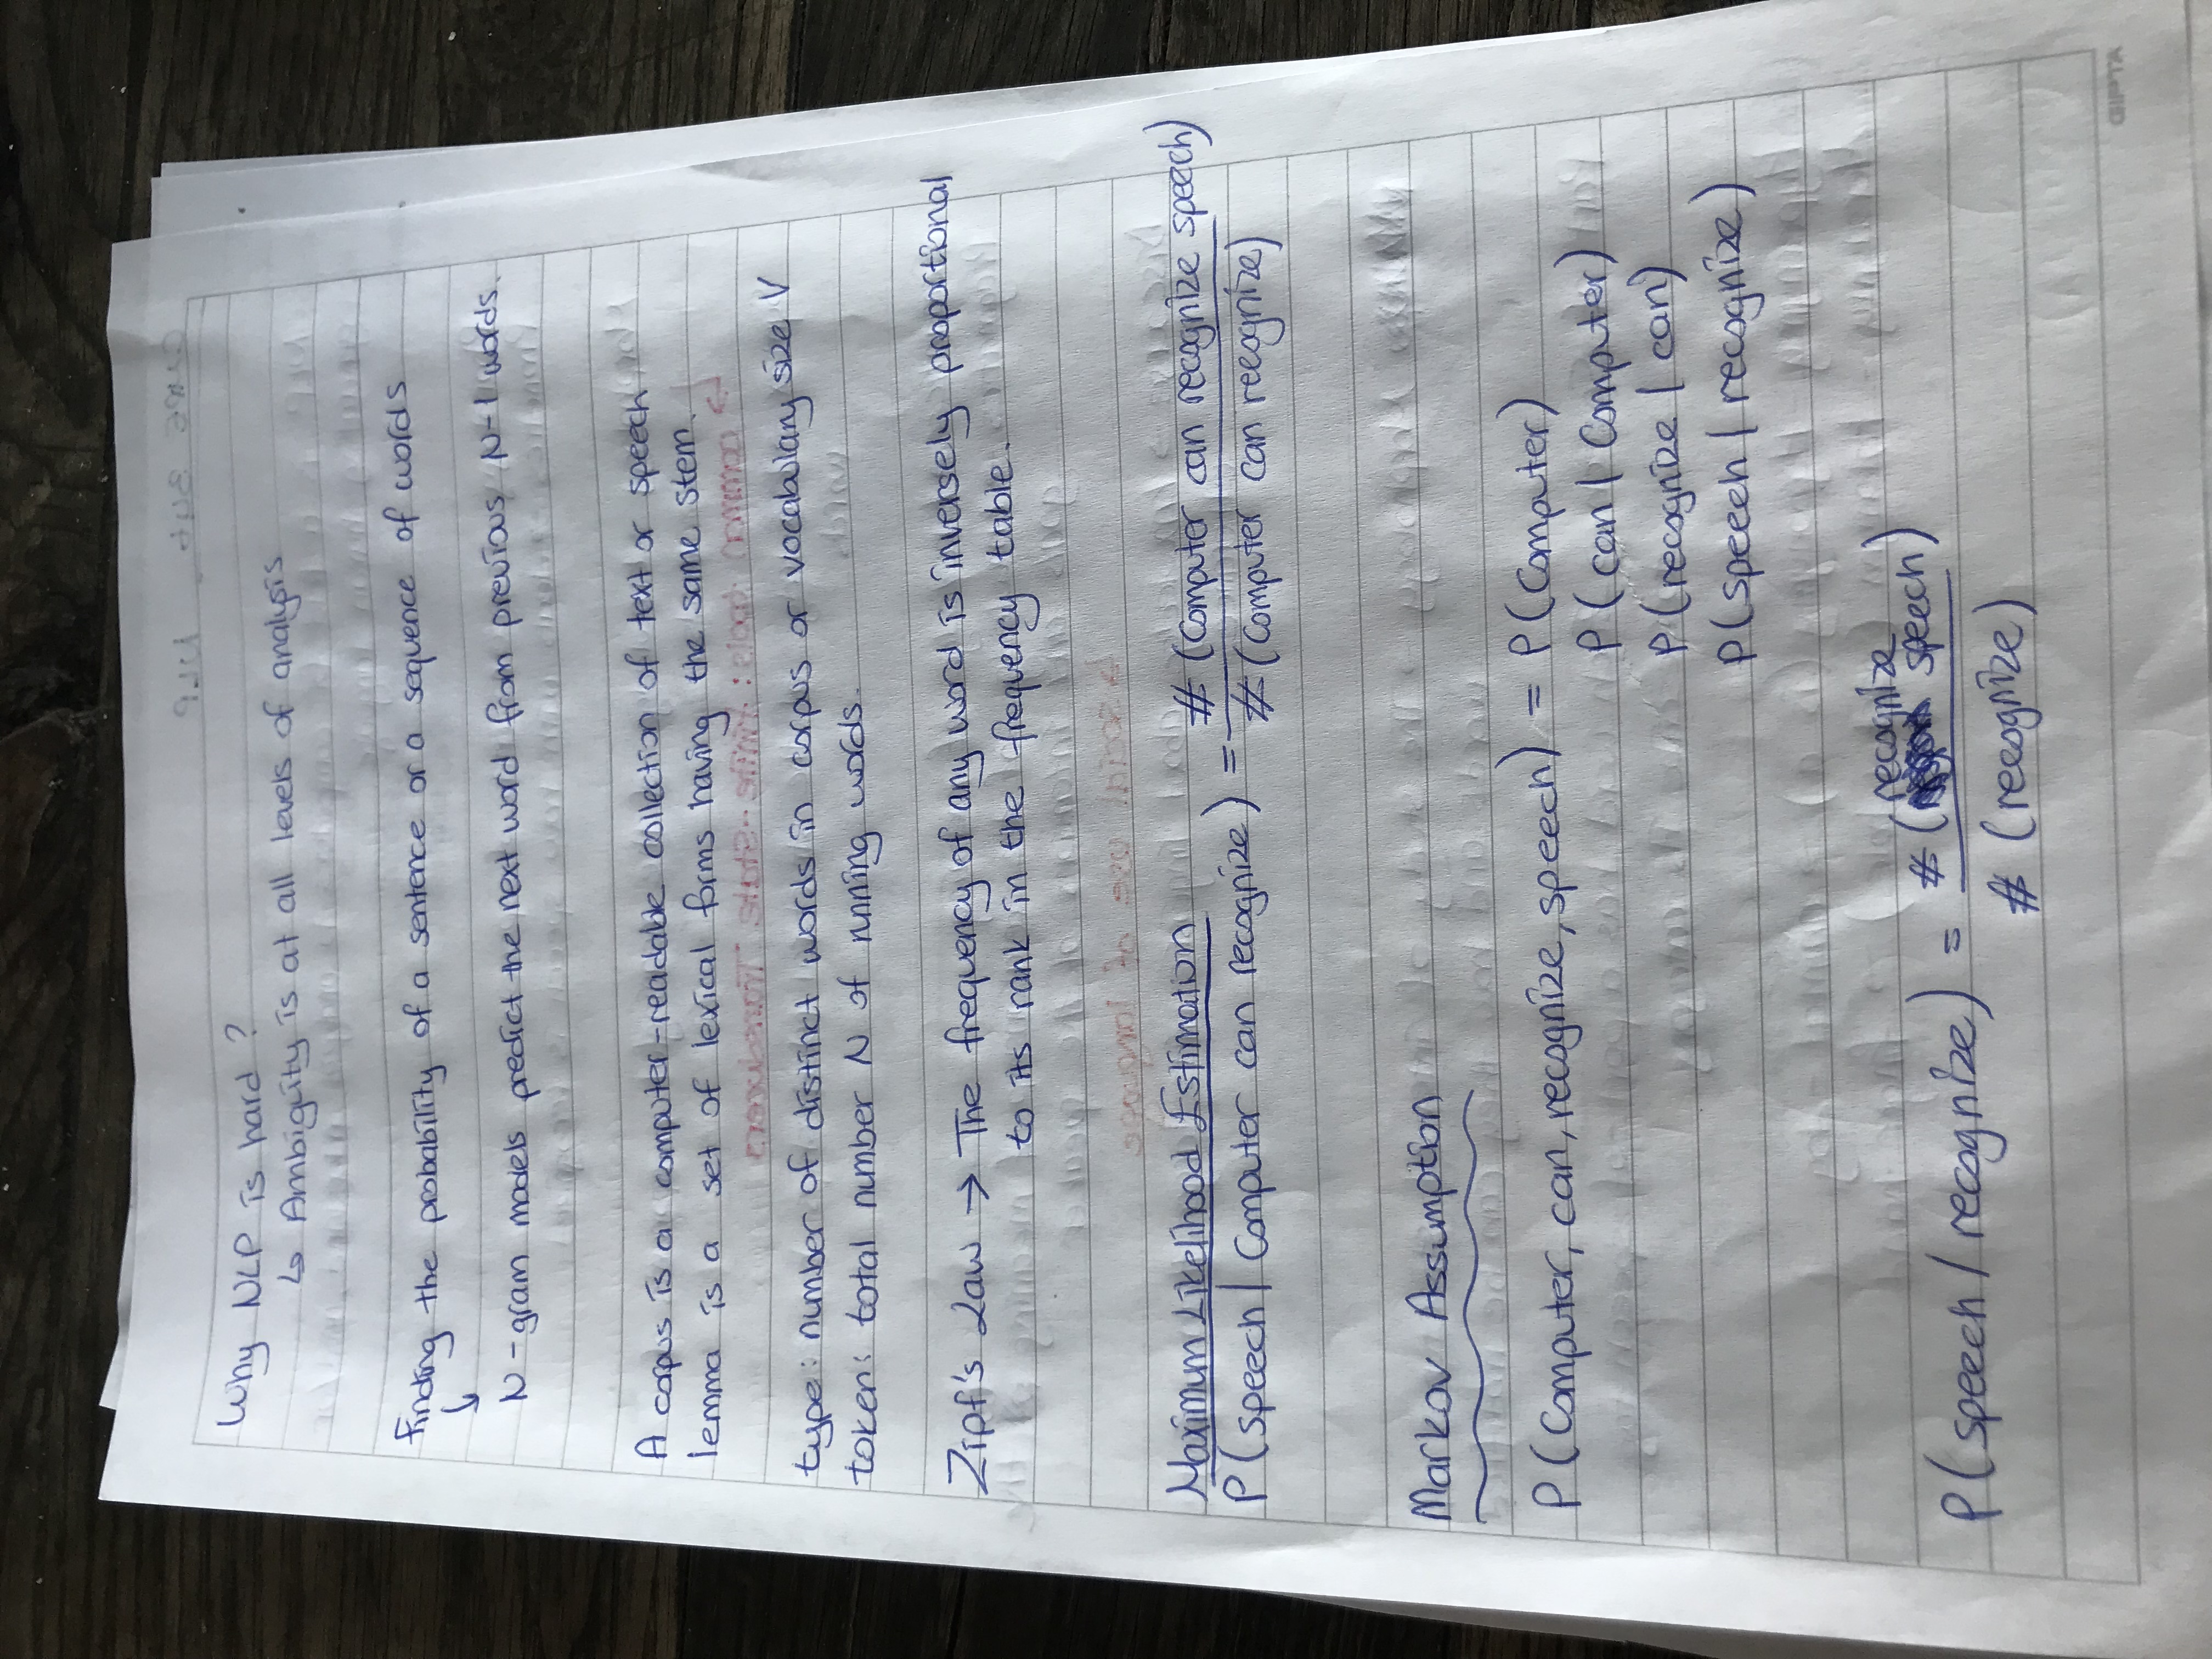 Why NLP is hard ?
↳ Ambiguity is at all levels of analysis
Finding the probability of a sentence or a sequence of words
↓
N-gram models predict the next word from previous N-1 words.
A corpus is a computer-readable collection of text or speech
lemma is a set of lexical forms having the same stem.
type: number of distinct words in corpus or vocabulary size V
token: total number N of running words.
Zipf's Law → The frequency of any word is inversely proportional
to its rank in the frequency table.
Maximum Likelihood Estimation
P(speech | Computer can recognize) = #(Computer can recognize speech)
#(Computer can recognize)
Markov Assumption
P(Computer, can, recognize, speech) = P(Computer)
P(can | Computer)
P(recognize | can)
P(speech | recognize)
recognize
P(speech / recognize) = #( speech)
#(recognize)
GIPTA